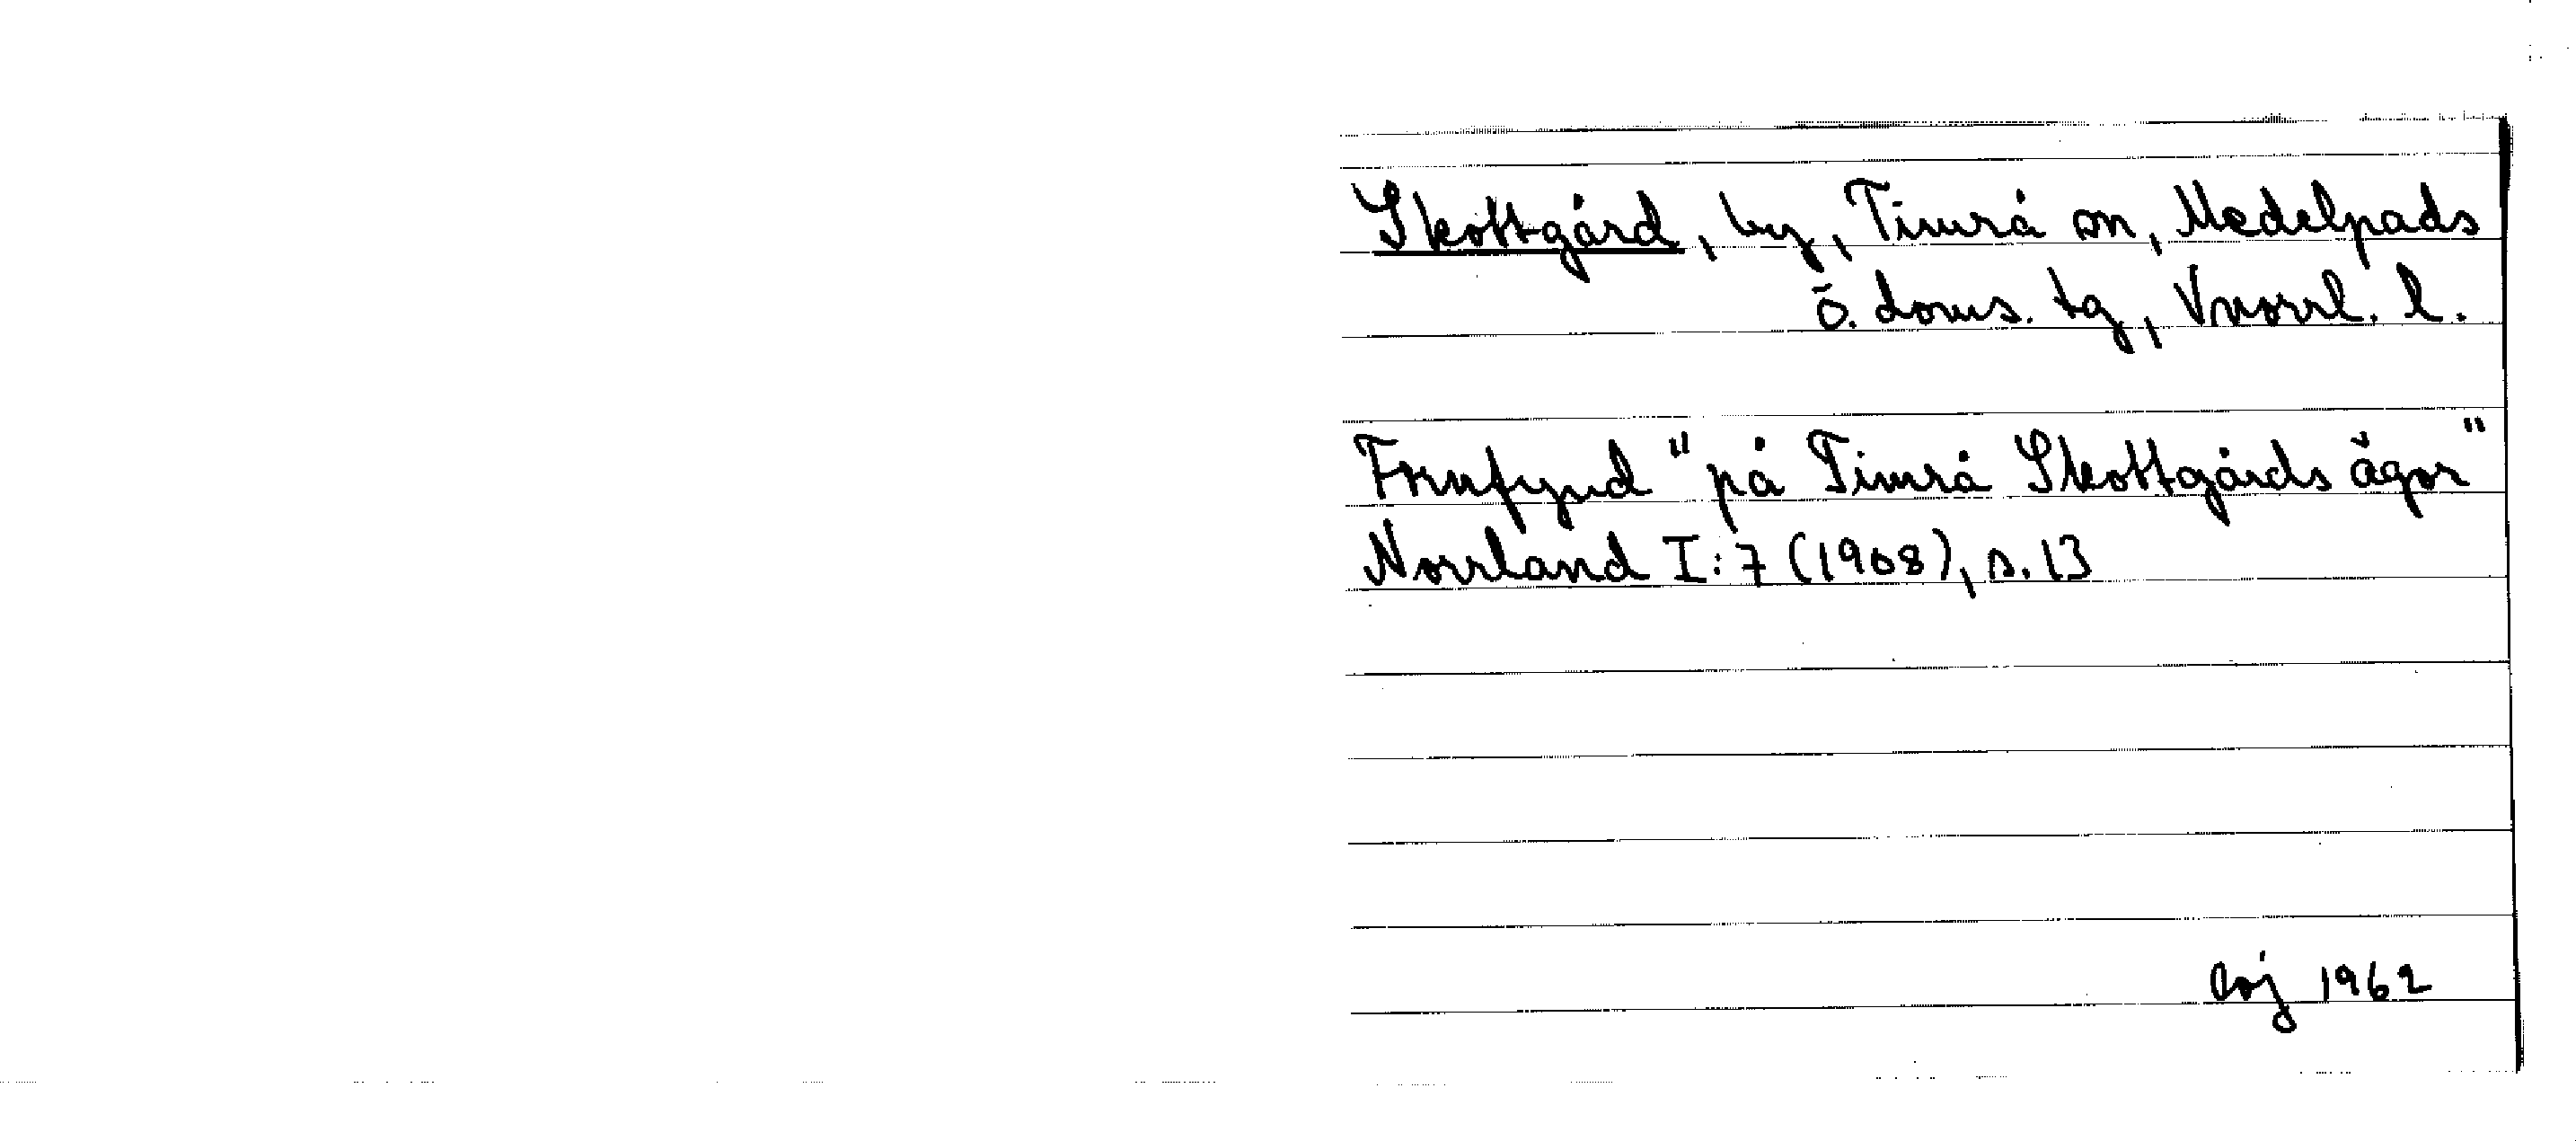 Skottgård, by, Timrå sn, Medelpads
ö. doms. tg, Vnorrl. l.
Fornfynd "på Timrå Skottgårds ägor"
Norrland I:7 (1908), s. 13
1962